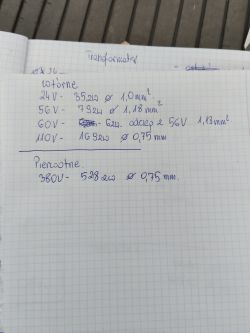 Transformator
wtórne
24V - 35zw ø 1,0mm²
56V - 79zw ø 1,18mm²
60V - 6zw. odczep z 56V 1,18mm²
110V - 169zw ø 0,75mm
Pierwotne
380V - 528zw ø 0,75mm.